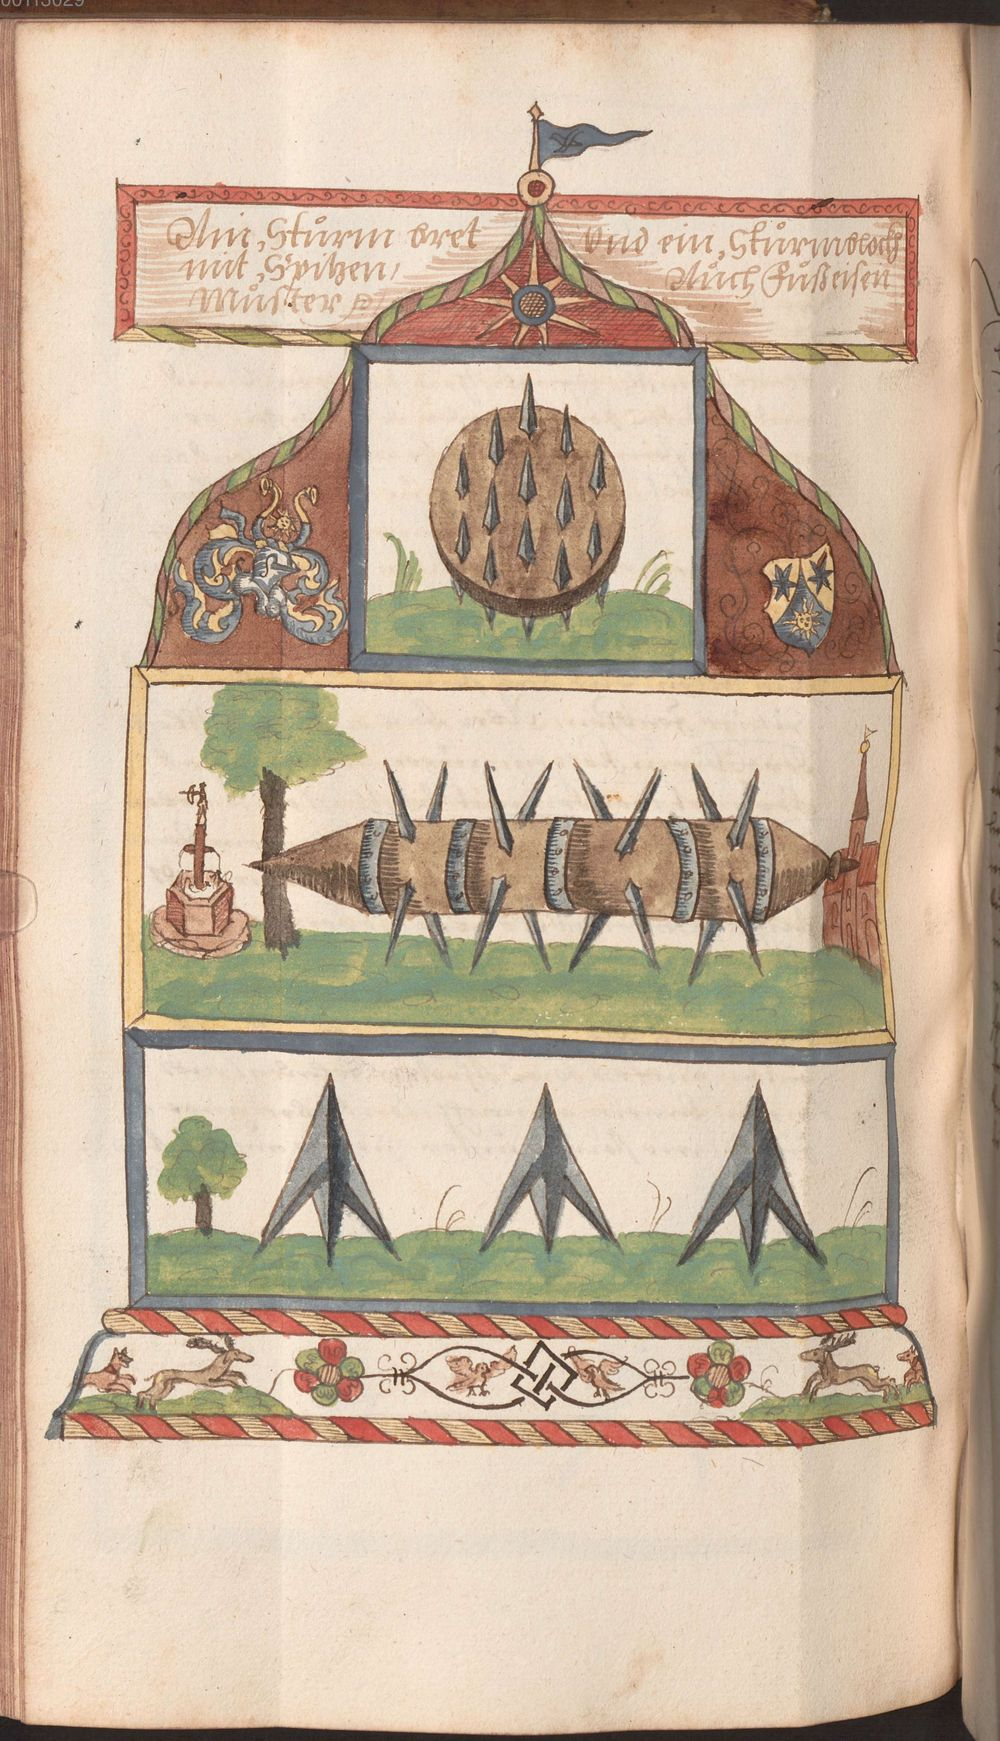 00113029
Ain Stůrm bret
mit Spitzen,
Můster
Und ein Stůrmbloch
Aůch Fůßeisen